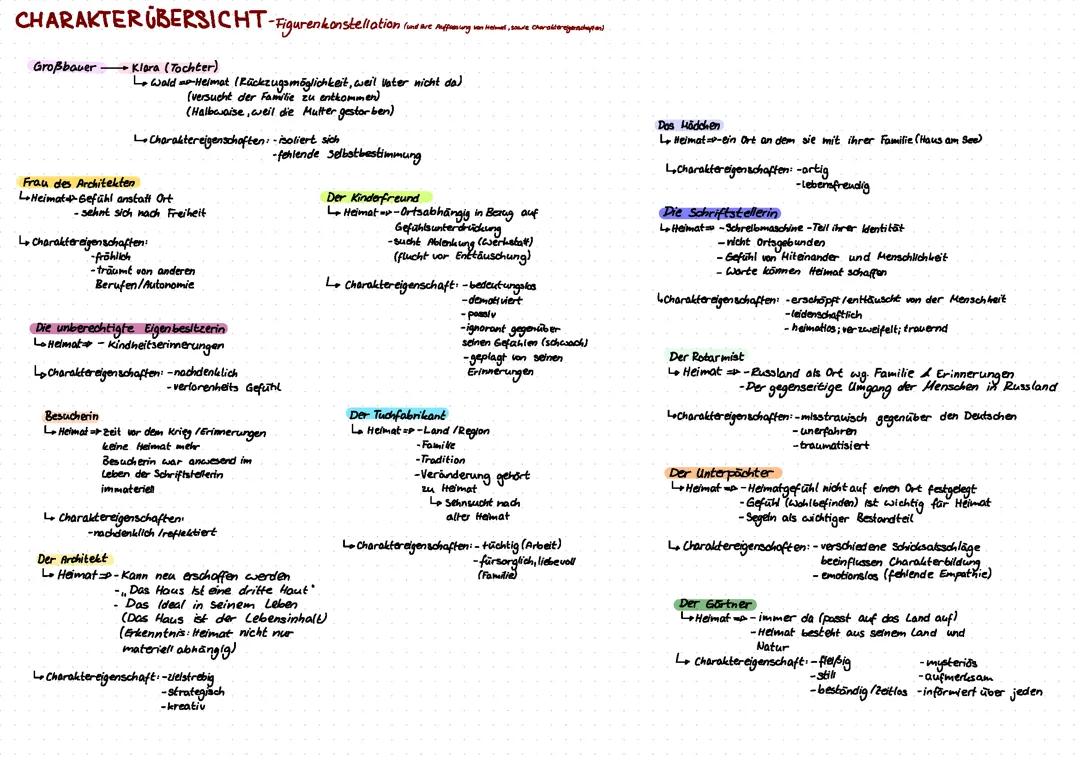 CHARAKTERÜBERSICHT - Figurenkonstellation (und ihre Auffassung von Heimat, sowie Charaktereigenschaften)
Großbauer → Klara (Tochter)
↳ Wald => Heimat (Rückzugsmöglichkeit, weil Vater nicht da)
(versucht der Familie zu entkommen)
(Halbwaise, weil die Mutter gestorben)
↳ Charaktereigenschaften: - isoliert sich
- fehlende Selbstbestimmung
Frau des Architekten
↳ Heimat => Gefühl anstatt Ort
- sehnt sich nach Freiheit
↳ Charaktereigenschaften:
- fröhlich
- träumt von anderen
Berufen/Autonomie
Die unberechtigte Eigenbesitzerin
↳ Heimat => - Kindheitserinnerungen
↳ Charaktereigenschaften: - nachdenklich
- verlorenheits Gefühl
Besucherin
↳ Heimat => Zeit vor dem Krieg / Erinnerungen
keine Heimat mehr
Besucherin war anwesend im
Leben der Schriftstellerin
immateriell
↳ Charaktereigenschaften:
- nachdenklich / reflektiert
Der Architekt
↳ Heimat => - Kann neu erschaffen werden
- „Das Haus ist eine dritte Haut"
- Das Ideal in seinem Leben
(Das Haus ist der Lebensinhalt)
(Erkenntnis: Heimat nicht nur
materiell abhängig)
↳ Charaktereigenschaft: - zielstrebig
- strategisch
- kreativ
Der Kinderfreund
↳ Heimat => - Ortsabhängig in Bezug auf
Gefühlsunterdrückung
- sucht Ablenkung (Werkstatt)
(flucht vor Enttäuschung)
↳ Charaktereigenschaft: - bedeutungslos
- demotiviert
- passiv
- ignorant gegenüber
seinen Gefühlen (schwach)
- geplagt von seinen
Erinnerungen
Der Tuchfabrikant
↳ Heimat => - Land / Region
- Familie
- Tradition
- Veränderung gehört
zu Heimat
↳ Sehnsucht nach
alter Heimat
↳ Charaktereigenschaften: - tüchtig (Arbeit)
- fürsorglich, liebevoll
(Familie)
Das Mädchen
↳ Heimat => - ein Ort an dem sie mit ihrer Familie (Haus am See)
↳ Charaktereigenschaften: - artig
- lebensfreudig
Die Schriftstellerin
↳ Heimat => - Schreibmaschine - Teil ihrer Identität
- nicht Ortsgebunden
- Gefühl von Miteinander und Menschlichkeit
- Worte können Heimat schaffen
↳ Charaktereigenschaften: - erschöpft / enttäuscht von der Menschheit
- leidenschaftlich
- heimatlos; verzweifelt; trauernd
Der Rotarmist
↳ Heimat => - Russland als Ort wg. Familie & Erinnerungen
- Der gegenseitige Umgang der Menschen in Russland
↳ Charaktereigenschaften: - misstrauisch gegenüber den Deutschen
- unerfahren
- traumatisiert
Der Unterpächter
↳ Heimat => - Heimatgefühl nicht auf einen Ort festgelegt
- Gefühl (Wohlbefinden) ist wichtig für Heimat
- Segeln als wichtiger Bestandteil
↳ Charaktereigenschaften: - verschiedene Schicksalsschläge
beeinflussen Charakterbildung
- emotionslos (fehlende Empathie)
Der Gärtner
↳ Heimat => - immer da (passt auf das Land auf)
- Heimat besteht aus seinem Land und
Natur
↳ Charaktereigenschaft: - fleißig - mysteriös
- still - aufmerksam
- beständig / Zeitlos - informiert über jeden